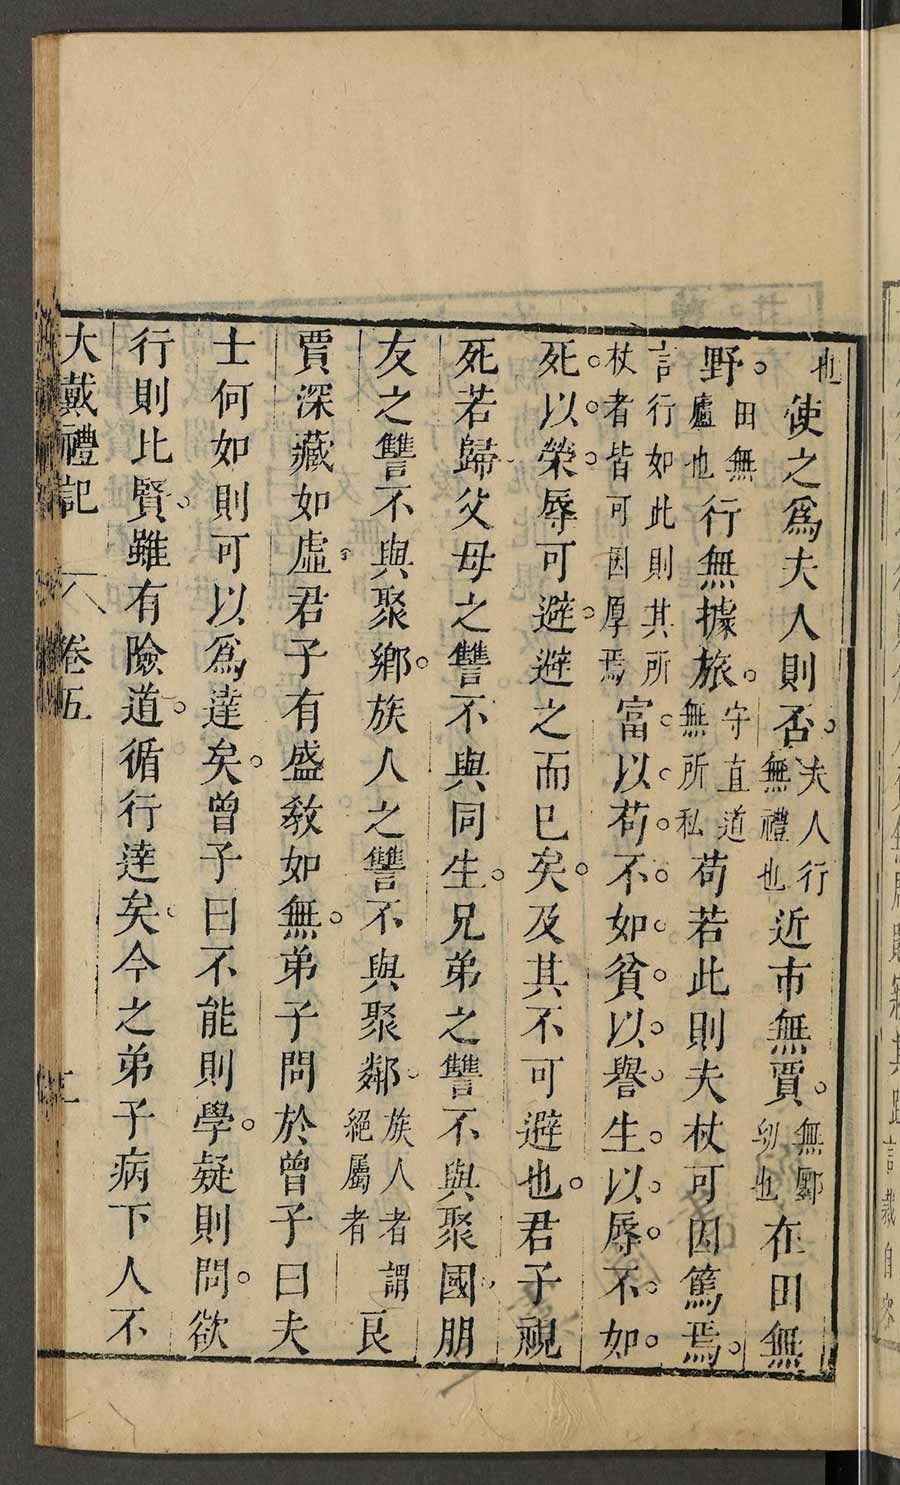 也使之爲夫人則否。夫人行無禮也近市無賈。無鄽也在田無
野。田無廬也行無據旅。守直道無所私苟若此則夫杖可因篤焉。
言行如此則其所杖者皆可因厚焉富。以。苟。不。如。貧。以。譽。生。以。辱。不。如。
死。以。榮。辱可避。避之而已矣。及其不可避也。君子視
死若歸父母之讐不與同生。兄弟之讐不與聚國朋
友之讐不與聚鄉。族人之讐不與聚鄰。族人者謂絕屬者良
賈深藏如虛君子有盛敎如無。弟子問於曾子曰夫
士何如則可以爲達矣。曾子曰不能則學。疑則問。欲
行則比賢。雖有險道。循行達矣。今之弟子病下人不
大戴禮記 卷五